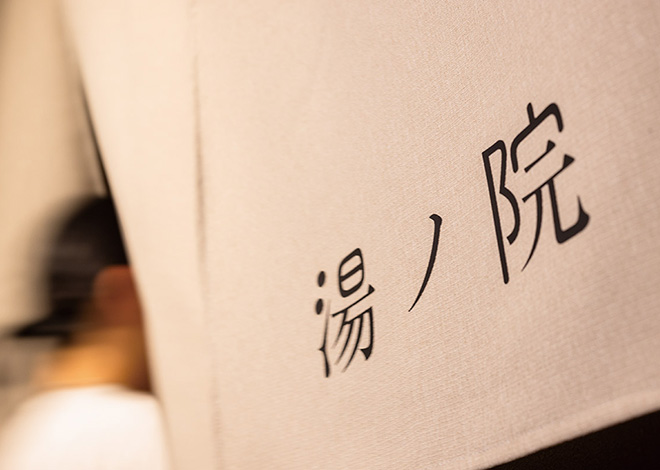 湯ノ院